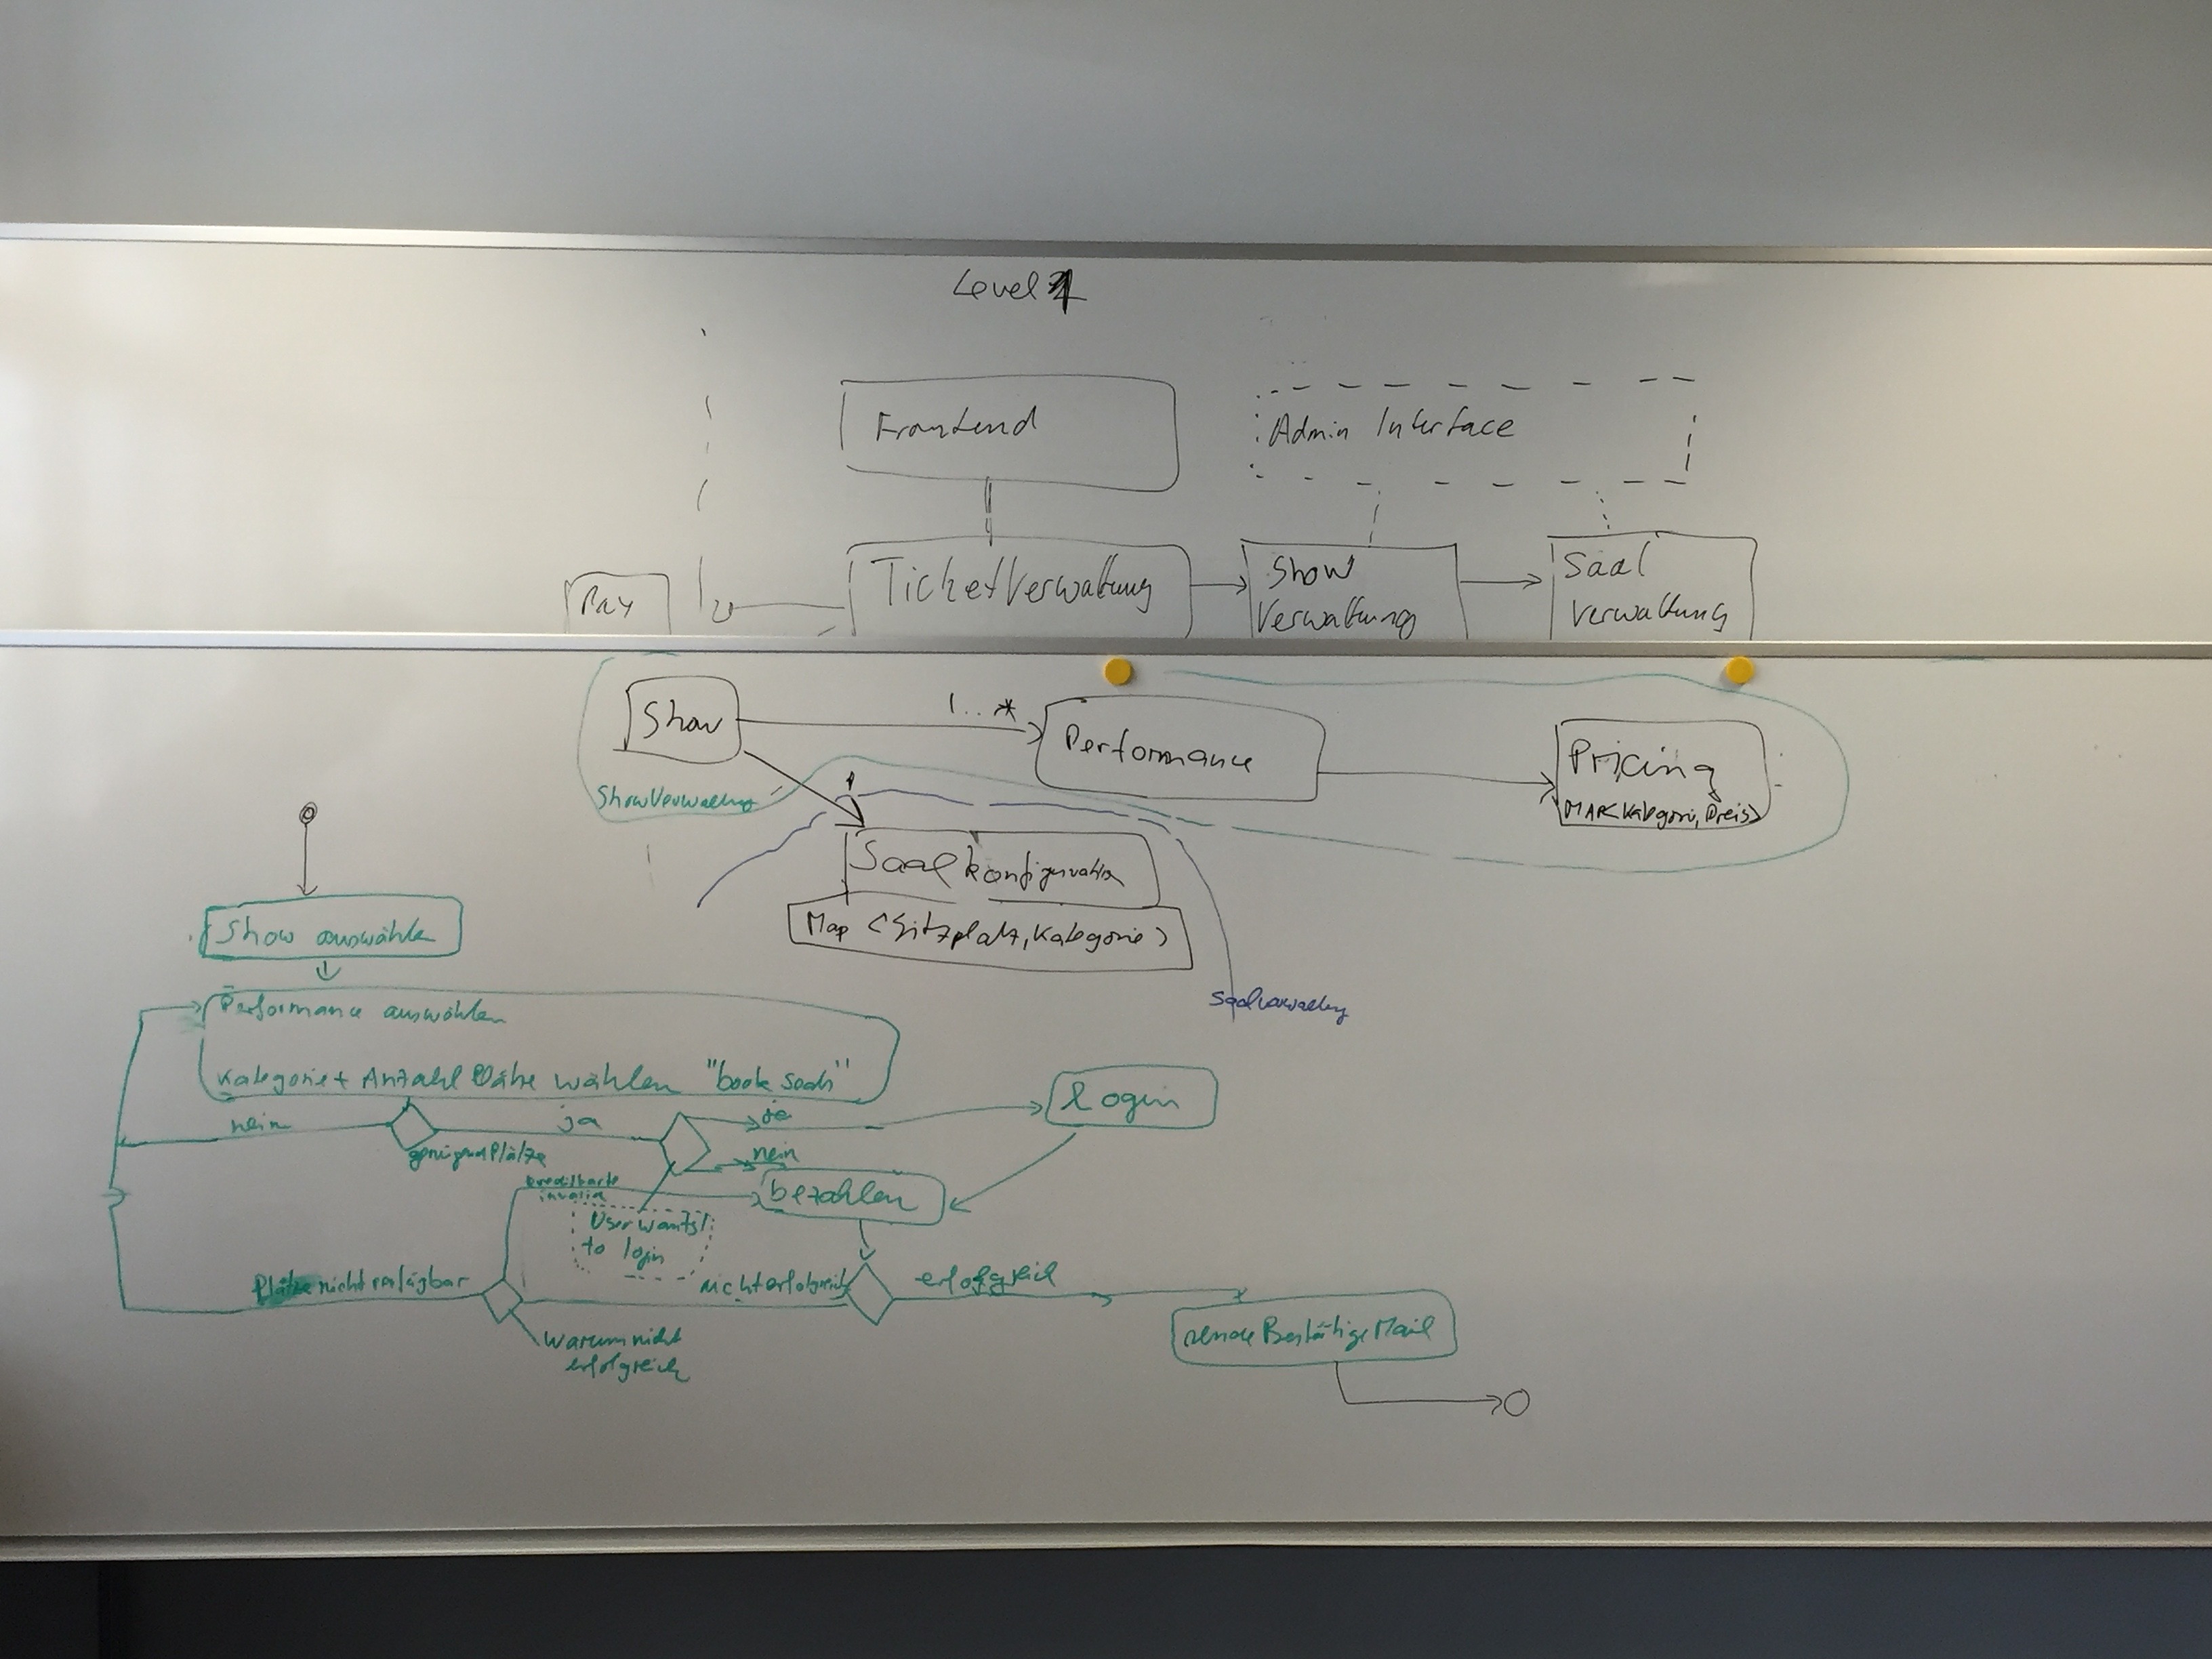 Level 1
Frontend
Admin Interface
Pay
TicketVerwaltung
Show
Verwaltung
Saal
Verwaltung
Show
1..*
Performance
Pricing
MAP<Kategorie, Preis>
ShowVerwaltung
1
Saalkonfiguration
Map <Sitzplatz, Kategorie>
Saalverwaltung
Show auswählen
Performance auswählen
Kategorie + Anzahl Plätze wählen "book seats"
nein
ja
ja
Login
genügend Plätze
nein
kreditkarte
invalid
bezahlen
User wants
to login
Plätze nicht verfügbar
nicht erfolgreich
erfolgreich
warum nicht
erfolgreich
sende Bestätige Mail